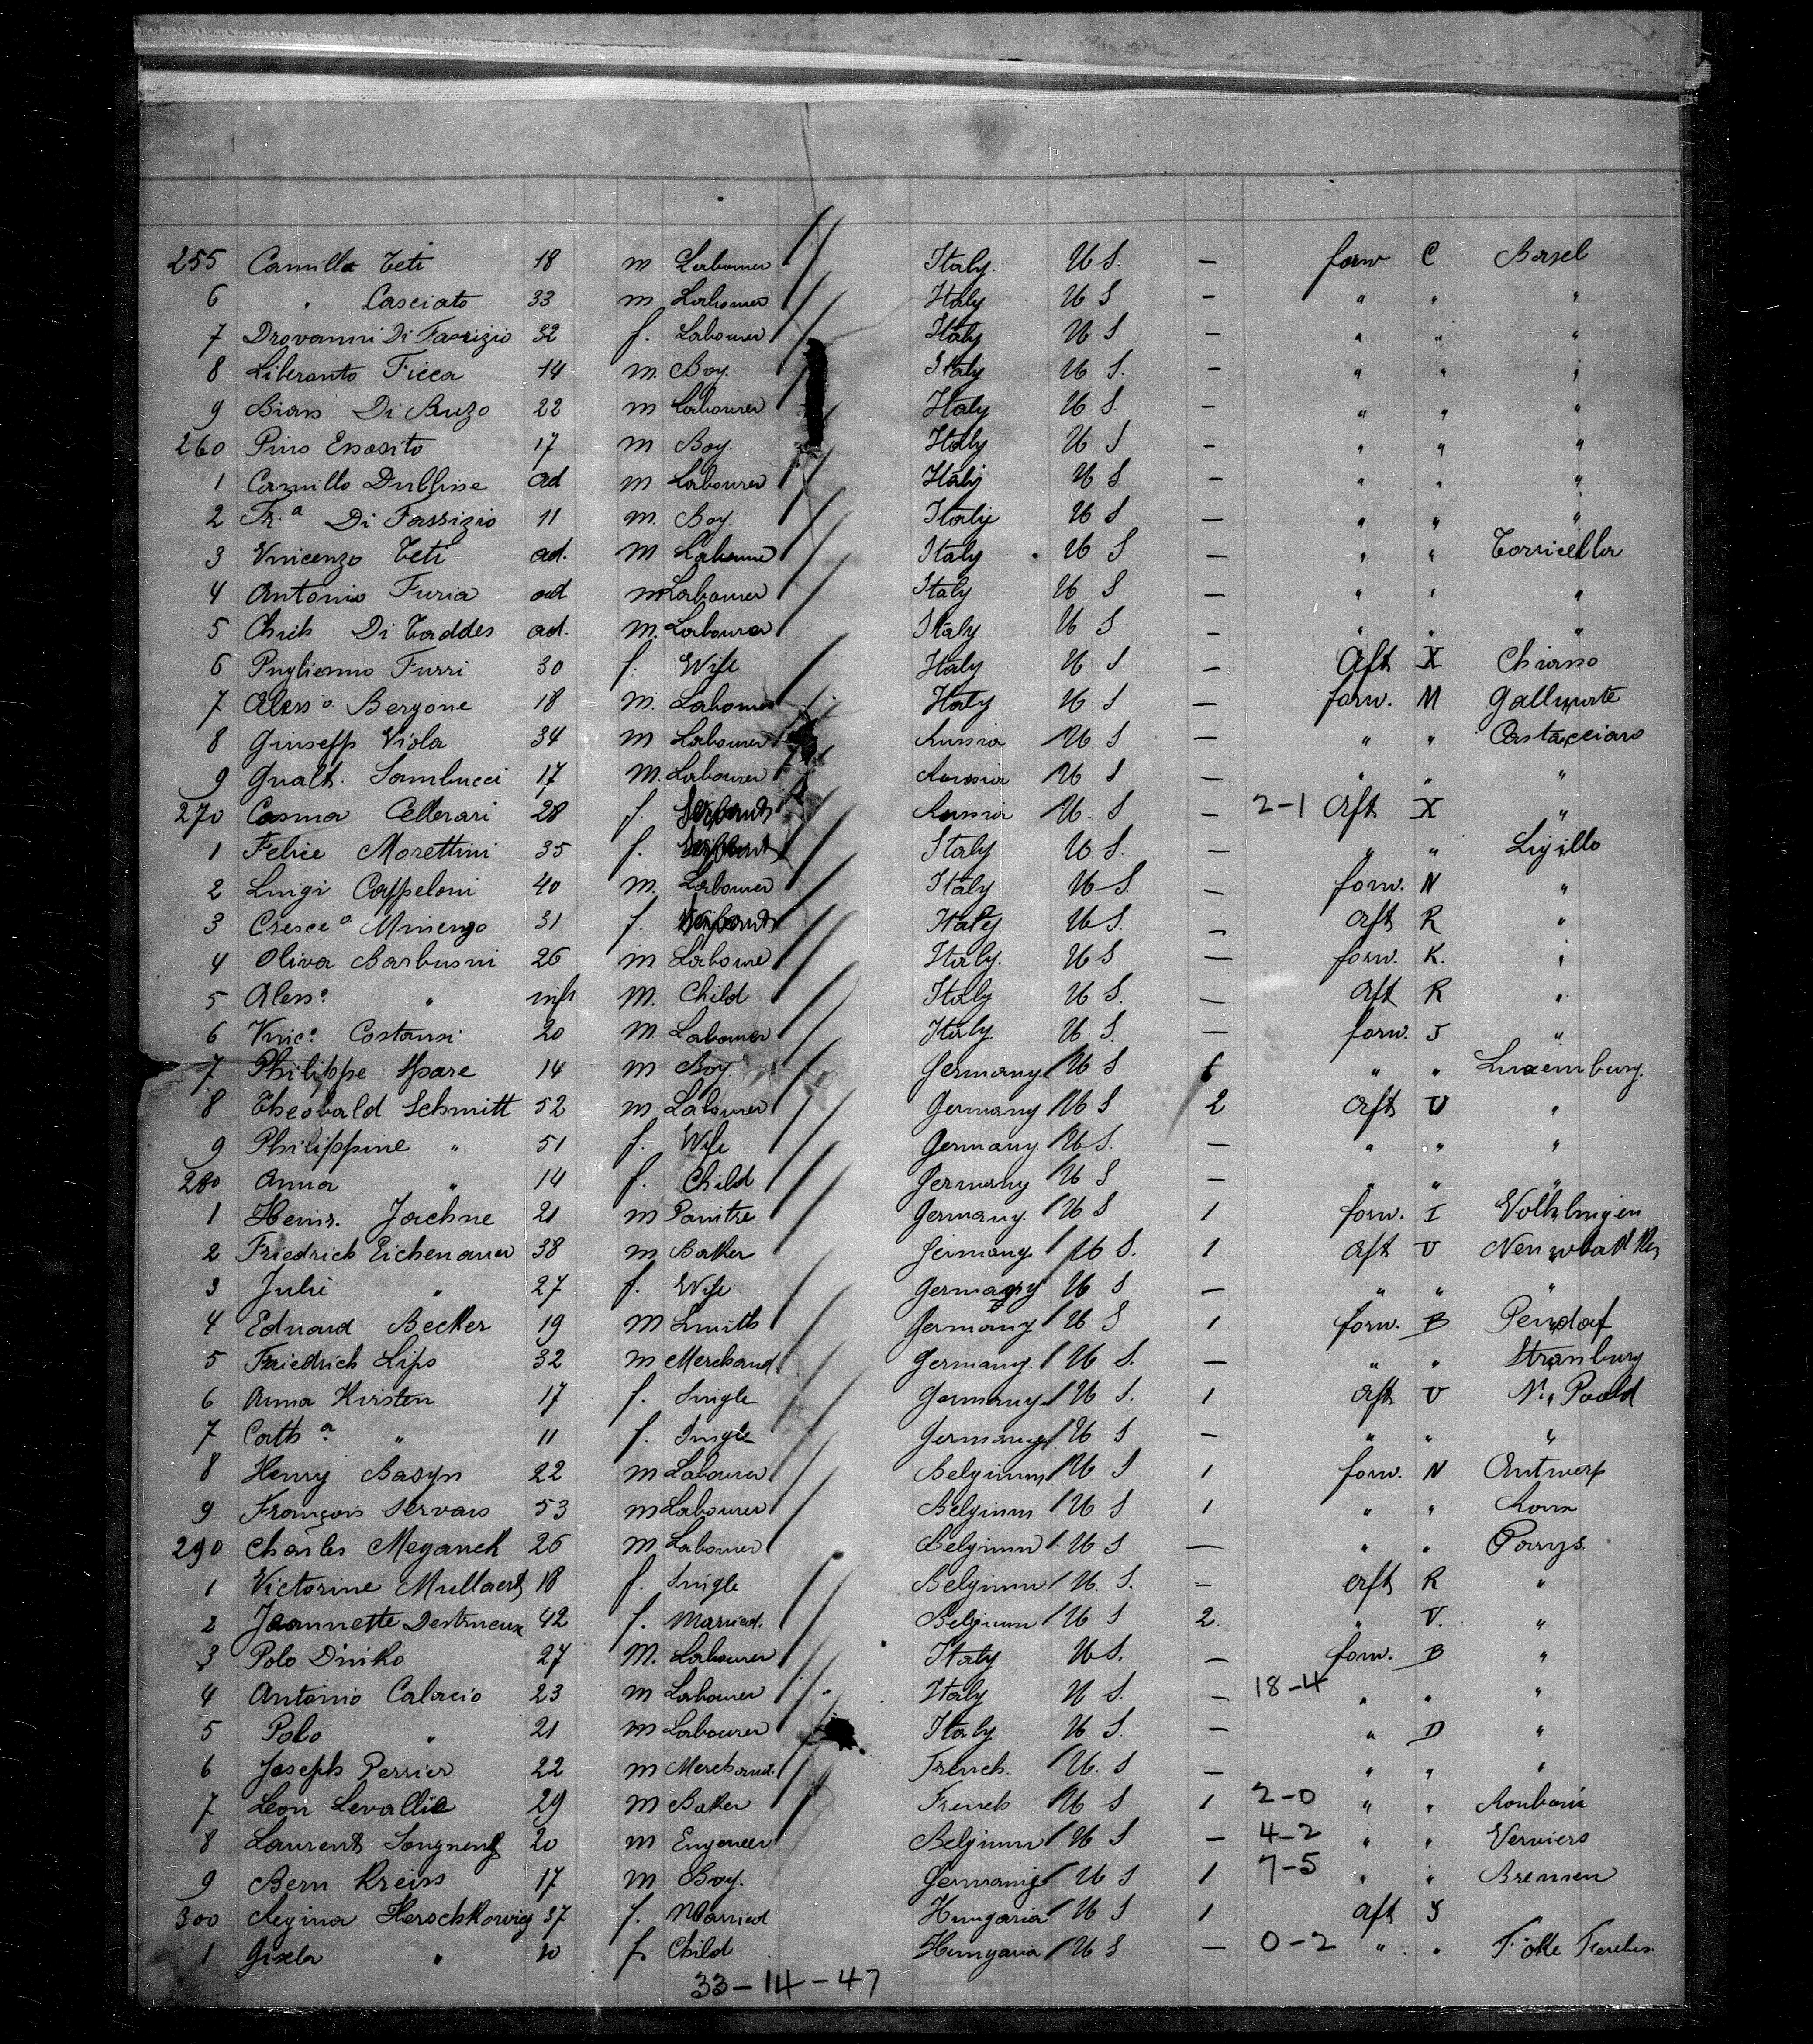 255 Camilla Teti 18 m Labourer Italy. U S. — forw C Basel
6 " Casciato 33 m Labourer Italy U S — " " "
7 Drovanni Di Fabrizio 32 f. Labourer Italy U. S — " " "
8 Liberanto Ficca 14 m. Boy. Italy U S. — " " "
9 Bias Di Buzo 22 m Labourer Italy U S. — " " "
260 Pino Enosito 17 m Boy. Italy U S — " " "
1 Camillo Dulfise ad m Labourer Italy U S — " " "
2 Fr.a Di Fassizio 11 m. Boy. Italy U S — " " "
3 Vincenzo Teti ad. m Labourer Italy U S — " " Torricella
4 Antonio Furia ad m Labourer Italy U S — " " "
5 Chich Di Taddes ad. m. Labourer Italy U S — " " "
6 Puglienno Furri 30 f. Wife Italy U S — Aft X Chiasso
7 Aless o. Bergone 18 m. Labourer Italy U S — forw. M Gallarate
8 Giusepp Viola 34 m Labourer Russia U S — " " Castacciaro
9 Gualt. Sambucci 17 m. Labourer Russia U S — " " "
270 Casma Cellerari 28 f. Russia U. S — 2-1 Aft X "
1 Felice Morettini 35 f. Italy U S. — " " Ligillo
2 Luigi Cappeloni 40 m. Labourer Italy U S. — forw. N "
3 Cresce o Minengo 31 f. Italy U S. — aft R "
4 Oliva Barbusni 26 m Labourer Italy. U S — forw. K. "
5 Aless o " inft m. Child Italy U S. — Aft R "
6 Vinc o. Costansi 20 m. Labourer Italy U S. — forw. J "
7 Philippe Spare 14 m Boy. Germany U S 1 " " Luxemburg.
8 Theobald Schmitt 52 m Labourer Germany U S 2 Aft U "
9 Philippine " 51 f. Wife Germany U S. — " " "
280 Anna " 14 f. Child Germany U S — " " "
1 Heinr. Jachne 21 m Germany. U S 1 forw. I Volklingen
2 Friedrich Eichenauer 38 m Baker Germany U S. 1 Aft U
3 Juli " 27 f. Wife Germany U S — " " "
4 Eduard Becker 19 m Smith Germany U S 1 forw. B Pendorf
5 Friedrich Lips 32 m Merchand. Germany. U S. — " " Strasburg
6 Anna Kirsten 17 f. Single Germany U S. 1 Aft U
7 Cath a. " 11 f. Single Germany U S — " " "
8 Henry Basyn 22 m Labourer Belgium U S 1 forw. N Antwerp
9 François Servais 53 m Labourer Belgium U S 1 " " Roux
290 Charles Meganck 26 m Labourer Belgium U S — " " Parys
1 Victorine Mullaert 18 f. Single Belgium U. S. — aft R "
2 Jeannette Destrueux 42 f. Married. Belgium U S 2. " V. "
3 Polo Diniko 27 m. Labourer Italy U S. — forw. B "
4 Antonio Calacio 23 m Labourer Italy U S. — 18-4 " " "
5 Polo " 21 m Labourer Italy U S. — " D "
6 Joseph Perrier 22 m Merchand. French. U. S — " " "
7 Leon Levallie 29 m Baker French U S 1 2-0 " " Roubaix
8 Laurent 20 m Engeneer Belgium U S — 4-2 " " Verviers
9 Bern Kreiss 17 m Boy. Germany U S 1 7-5 " " Bremen
300 Regina Herschkowicz 37 f. Married Hungaria U S 1 aft S "
1 Gisela " 10 f. Child Hungaria U S — 0-2 " "
33-14-47